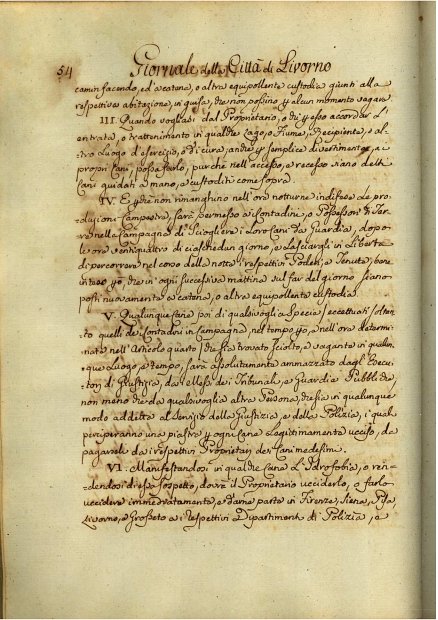 54 Giornale della Città di Livorno
camin facendo, ed a catena, o altra equipollente custodia giunti alla
respettiva abitazione, in guisa, che non possino p alcun momento vagare
III. Quando vogliasi dal Proprietario, o chi p esso accordar L'en
trata, o trattenimento in qualche Lago, o Fiume, Recipiente, o al
tro Luogo d'esercizio, o di cura, anche p semplice divertimento, ai
propri Cani, possa farlo, purchè nell'accesso, e recesso siano delti
Cani guidati a mano, e custoditi come sopra
IV. E p che non rimanghino nell'ore notturne indifese Le pro
duzioni Campestri, sarà permesso a i Contadini, o Possessori di Ter
re nella Campagna di sciogliere i Loro Cani da Guardia, dopo
le ore ventiquattro di ciaschedun giorno, e Lasciargli in Libertà
di percorrere nel corso della notta i respettivi Poderi, e Tenute, bene
inteso p o, che in ogni successiva mattina sul far del giorno siano
posti nuovamente a catena, o altra equipollente custodia.
V. Qualunque Cane poi di qualsivoglia Specie (eccettuati soltan
to quelli de' Contadini in Campagna, nel tempo p o, e nell'ora determi
nata nell'Articolo quarto) che sia trovato sciolto, e vagante in qualun
que Luogo e tempo, sarà assolutamente ammazzato dagl'Esecu
tori di Giustizia, da i Messi de i Tribunali, e Guardie Pubbliche,
non meno che da qualsivoglia altra Persona, che sia in qualunque
modo addetta al servizio della Giustizia, e della Polizia, i quali
percipiranno una piastra p ogni Cane Legittimamente ucciso, da
pagarsele da i respettivi Proprietari dei Cani medesimi.
VI. Manifestandosi in qualche Cane L'Idrofobia, o ren=
=dendosi di essa sospetto, dovrà il Proprietario ucciderlo, o farlo
uccidere immediatamente, e darne parte in Firenze, Siena, Pisa,
Livorno, e Grosseto a i respettivi Dipartimenti di Polizia, e